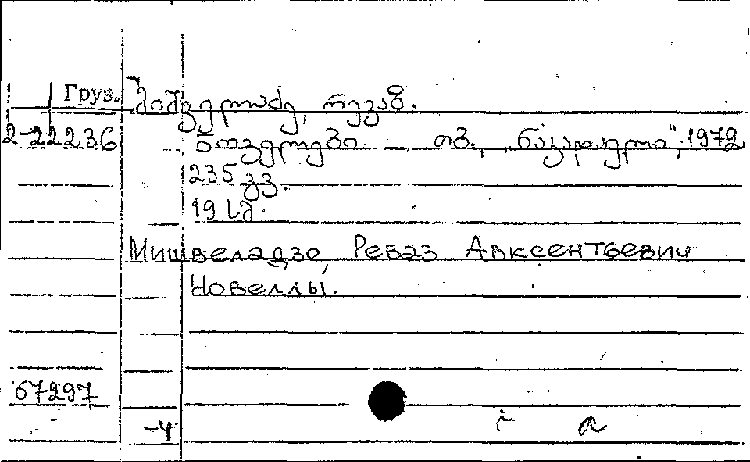 Груз. მიშველაძე, რევაზ.
2-22236 ნოველები — თბ., „ნაკადული“, 1972
235 გვ.
19 სმ.
Мишвеладзе, Реваз Авксентьевич
Новеллы.
67297
-4